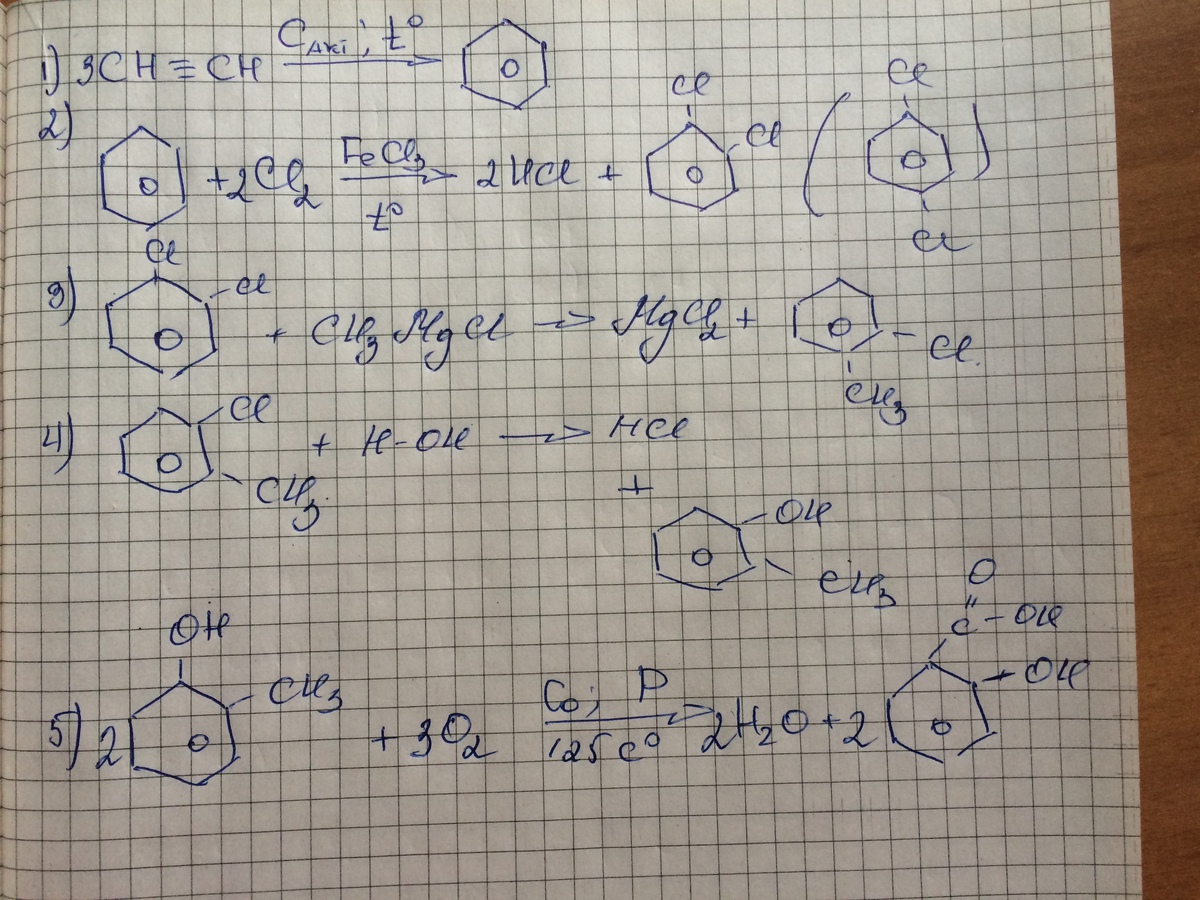 1) 3CH ≡ CH Cакт; t° →
2) + 2Cl₂ FeCl₃ t° → 2HCl + Cl Cl ( Cl Cl )
3) Cl Cl + CH₃MgCl → MgCl₂ + Cl CH₃
4) Cl CH₃ + H-OH → HCl + OH CH₃
5) 2 OH CH₃ + 3O₂ Co; P 125 C° → 2H₂O + 2 C=O -OH OH